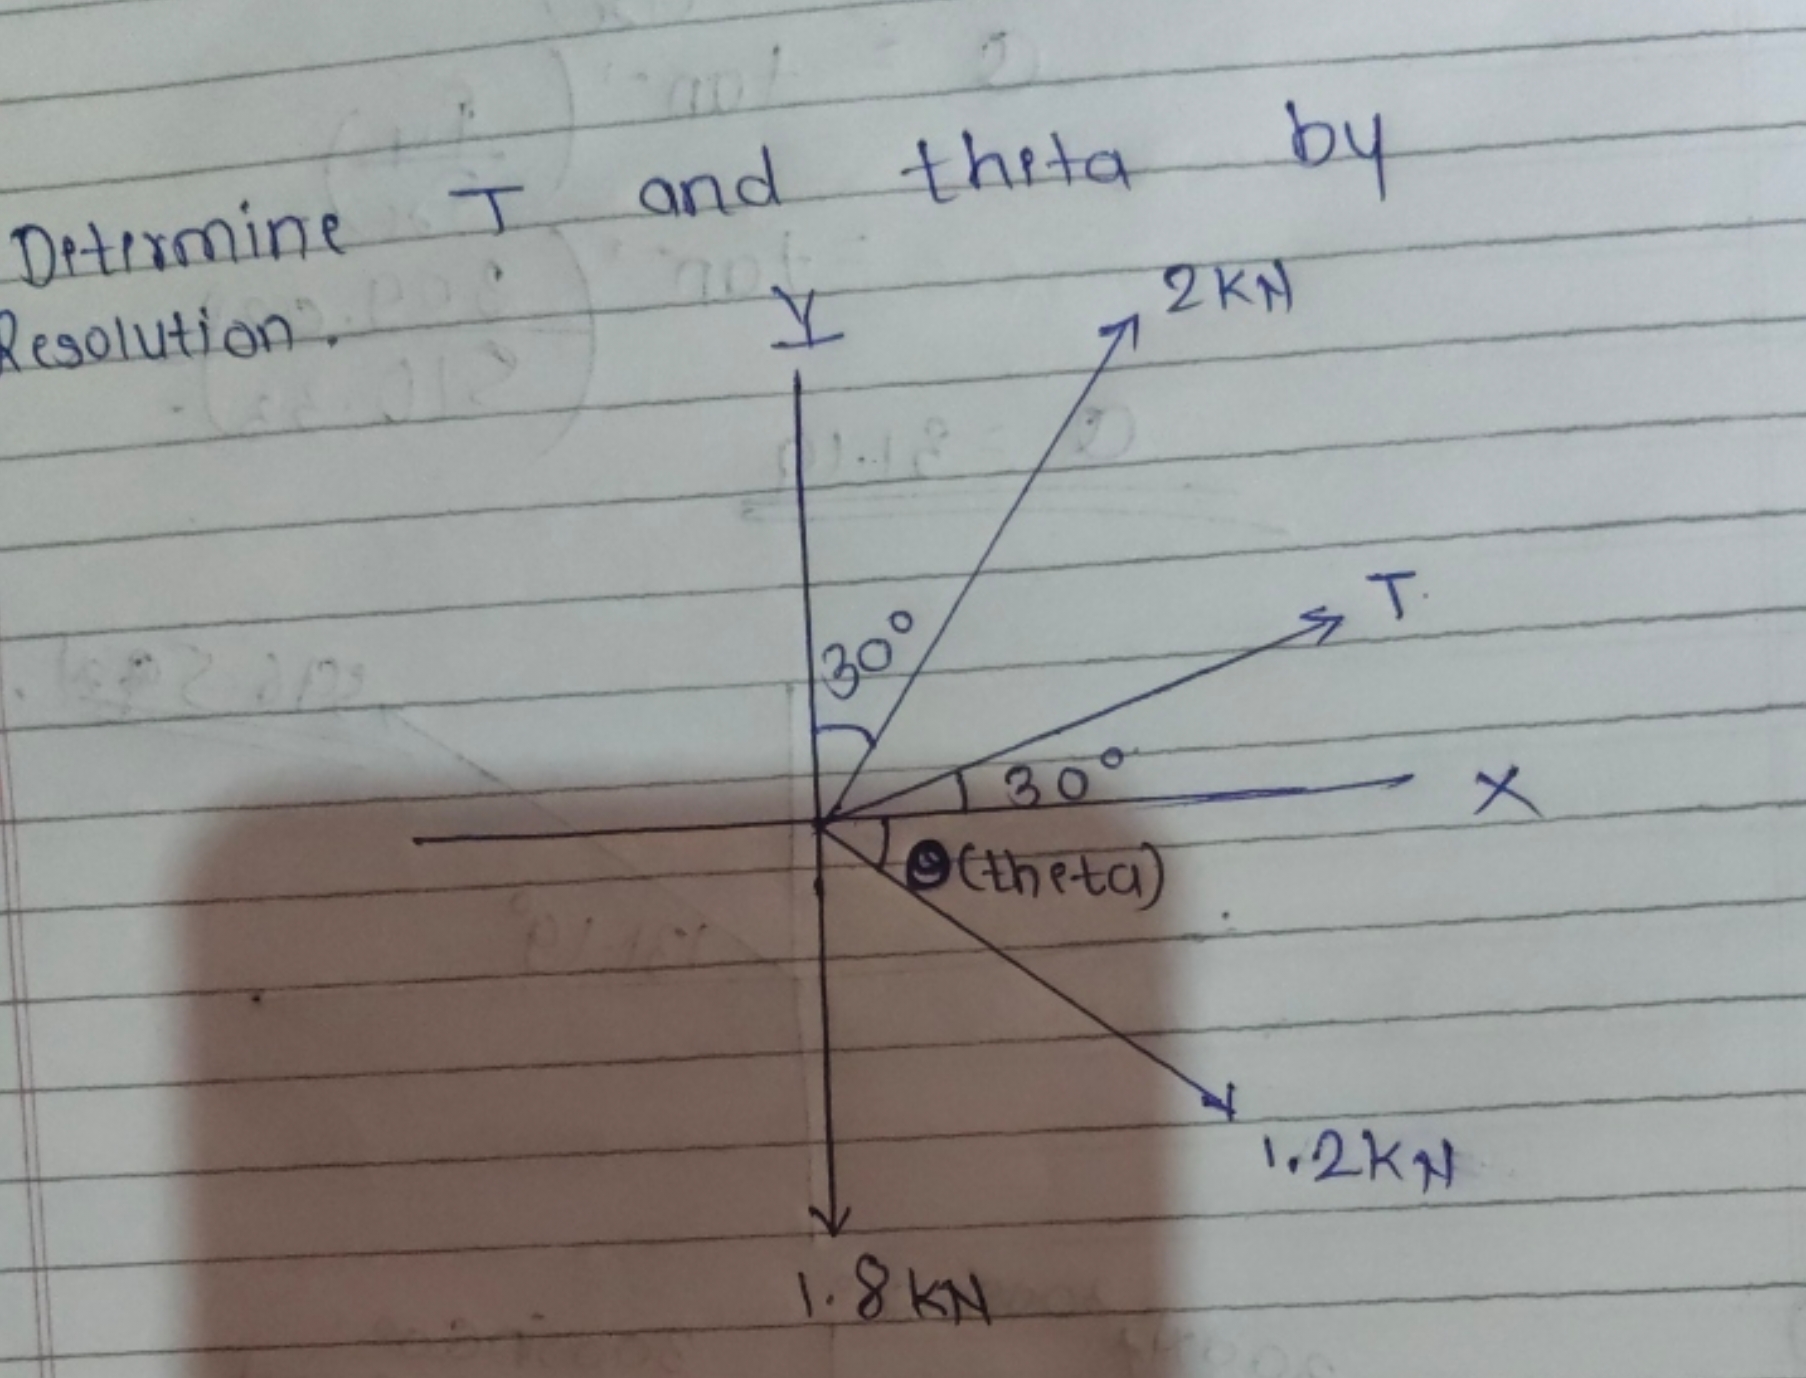 Determine T and theta by
Resolution.
Y
2KN
T
30°
30°
X
θ(theta)
1.2KN
1.8KN